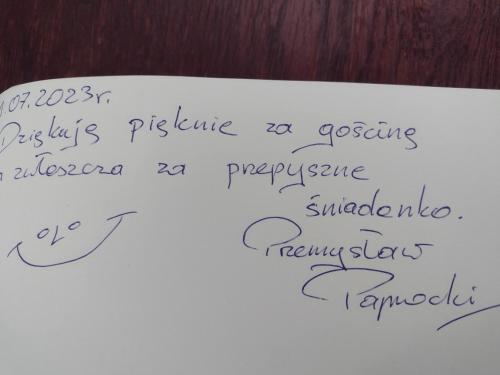 .07.2023r.
Dziękuję pięknie za gościnę
a zwłaszcza za przepyszne
śniadanko.
Przemysław